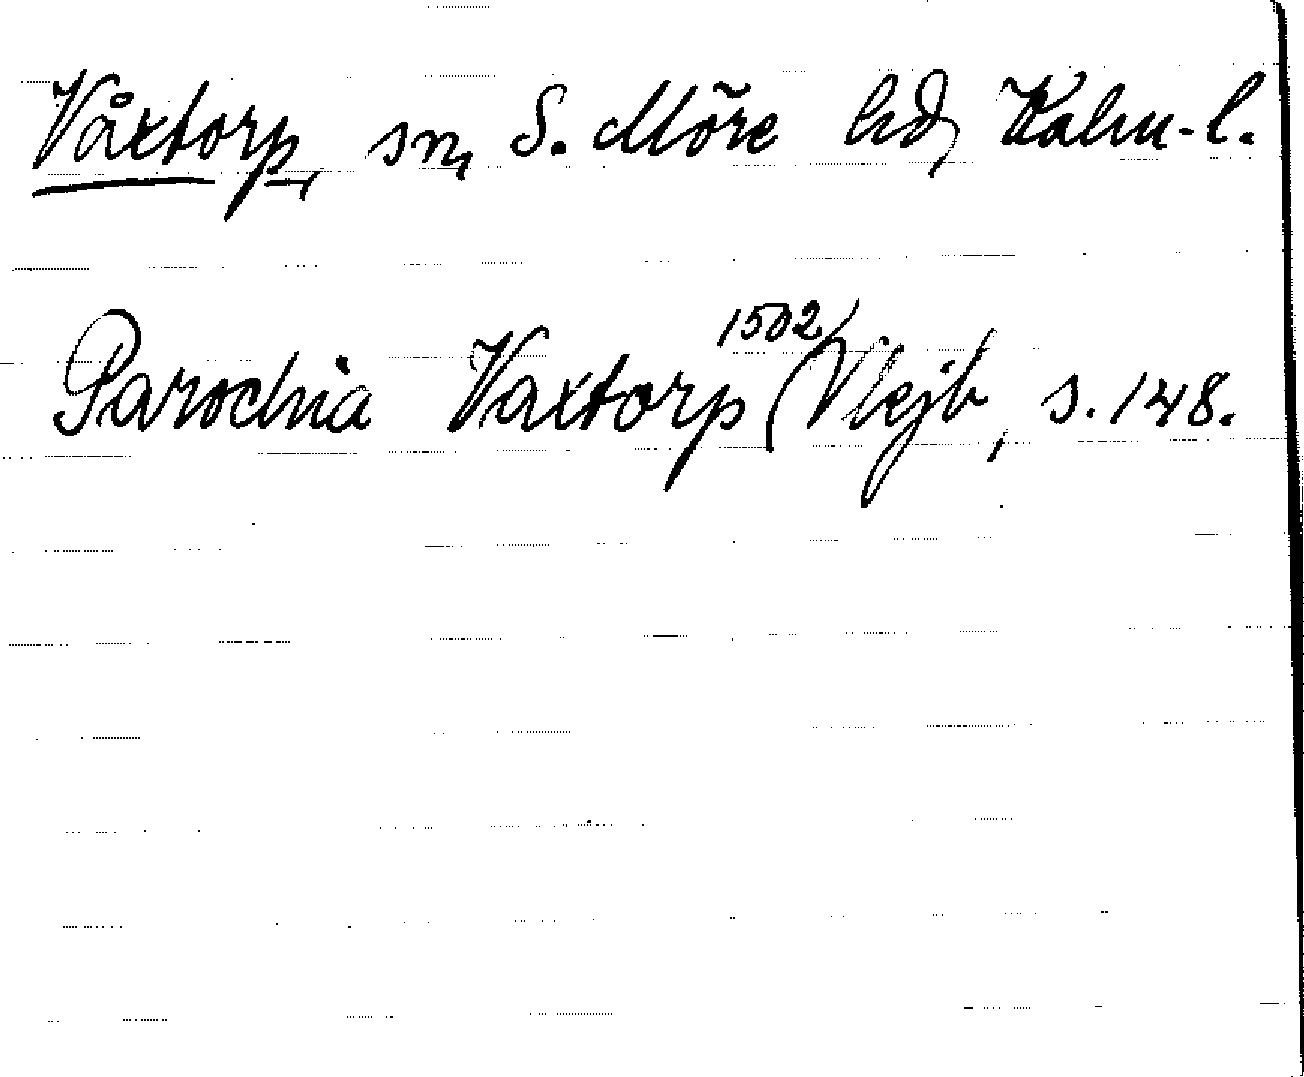 Våxtorp, sn, S. Möre hd, Kalm-l.
Parochia Vaxtorp 1502 (Vlejb, s. 148.